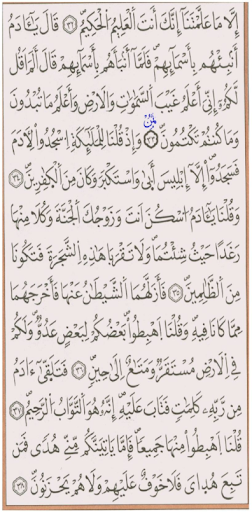 إِلَّا مَا عَلَّمْتَنَآ إِنَّكَ أَنتَ الْعَلِيمُ الْحَكِيمُ قَالَ يَٰٓـَٔادَمُ
أَنۢبِئْهُم بِأَسْمَآئِهِمْ فَلَمَّآ أَنۢبَأَهُم بِأَسْمَآئِهِمْ قَالَ أَلَمْ أَقُل
لَّكُمْ إِنِّىَ أَعْلَمُ غَيْبَ السَّمَٰوَٰتِ وَالْأَرْضِ وَأَعْلَمُ مَا تُبْدُونَ
ثمن
وَمَا كُنتُمْ تَكْتُمُونَ وَإِذْ قُلْنَا لِلْمَلَٰٓئِكَةِ اِسْجُدُوا لِأَدَمَ
فَسَجَدُوٓا إِلَّآ إِبْلِيسَ أَبَىٰ وَاسْتَكْبَرَ وَكَانَ مِنَ الْكَٰفِرِينَ
وَقُلْنَا يَٰٓـَٔادَمُ اُسْكُنْ أَنتَ وَزَوْجُكَ الْجَنَّةَ وَكُلَا مِنْهَا
رَغَدًا حَيْثُ شِئْتُمَا وَلَا تَقْرَبَا هَٰذِهِ الشَّجَرَةَ فَتَكُونَا
مِنَ الظَّٰلِمِينَ فَأَزَلَّهُمَا الشَّيْطَٰنُ عَنْهَا فَأَخْرَجَهُمَا
مِمَّا كَانَا فِيهِ وَقُلْنَا اَهْبِطُوا بَعْضُكُمْ لِبَعْضٍ عَدُوٌّ وَلَكُمْ
فِى الْأَرْضِ مُسْتَقَرٌّ وَمَتَٰعٌ إِلَىٰ حِينٍ فَتَلَقَّىٰٓ ءَادَمُ
مِن رَّبِّهِۦ كَلِمَٰتٍ فَتَابَ عَلَيْهِ إِنَّهُۥ هُوَ التَّوَّابُ الرَّحِيمُ
قُلْنَا اَهْبِطُوا مِنْهَا جَمِيعًا فَإِمَّا يَأْتِيَنَّكُم مِّنِّى هُدًى فَمَن
تَبِعَ هُدَاىَ فَلَا خَوْفٌ عَلَيْهِمْ وَلَا هُمْ يَحْزَنُونَ